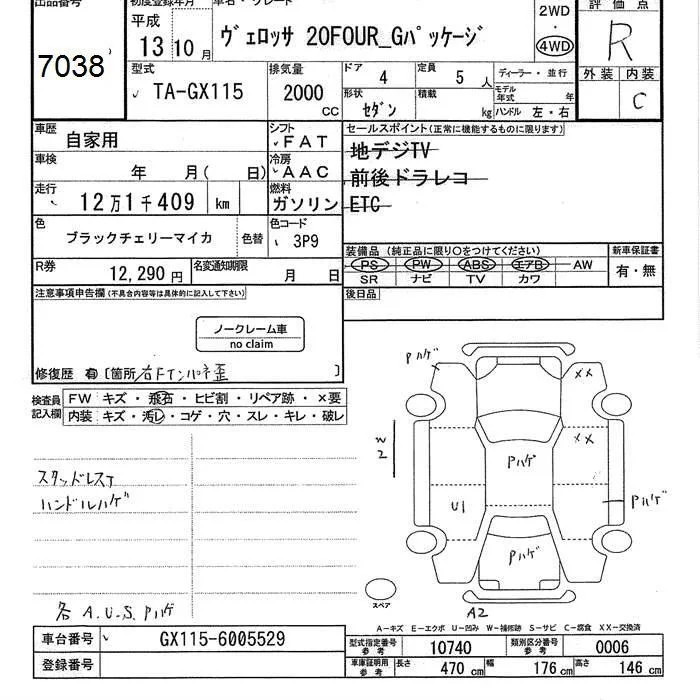 出品番号 初度登録年月 車名・グレード 評価点
7038 平成 13 10 月 ヴェロッサ 20FOUR_Gパッケージ 2WD 4WD R
型式 排気量 ドア 4 定員 5 人 ディーラー・並行 外装 内装
TA-GX115 2000 CC 形状 セダン 積載 kg モデル年式 年 ハンドル 左・右 C
車歴 自家用 シフト FAT セールスポイント(正常に機能するものに限ります)
車検 年 月( 日) 冷房 AAC 地デジTV
前後ドラレコ
走行 12万1千409 km 燃料 ガソリン ETC
色 ブラックチェリーマイカ 色替 色コード 3P9
装備品(純正品に限り○をつけてください) 新車保証書
R券 12,290 円 名変通知期限 月 日 PS PW ABS エアB AW 有・無
SR ナビ TV カワ
注意事項申告欄(不具合内容等は具体的に記入して下さい) 後日品
ノークレーム車
no claim
修復歴 有 [箇所 右Fインパネ歪 ]
検査員記入欄 FW キズ・飛石・ヒビ割・リペア跡・×要
内装 キズ・汚レ・コゲ・穴・スレ・キレ・破レ
スタッドレス
ハンドルハゲ
各 A.U.S.Pハゲ
Pハゲ
XX
XX
W2
Pハゲ
U1
Pハゲ
Pハゲ
スペア
A2
A-キズ E-エクボ U-凹み W-補修跡 S-サビ C-腐食 XX-交換済
車台番号 GX115-6005529 型式指定番号 参考 10740 類別区分番号 参考 0006
登録番号 車庫証明用 参考 長さ 470 cm 幅 176 cm 高さ 146 cm